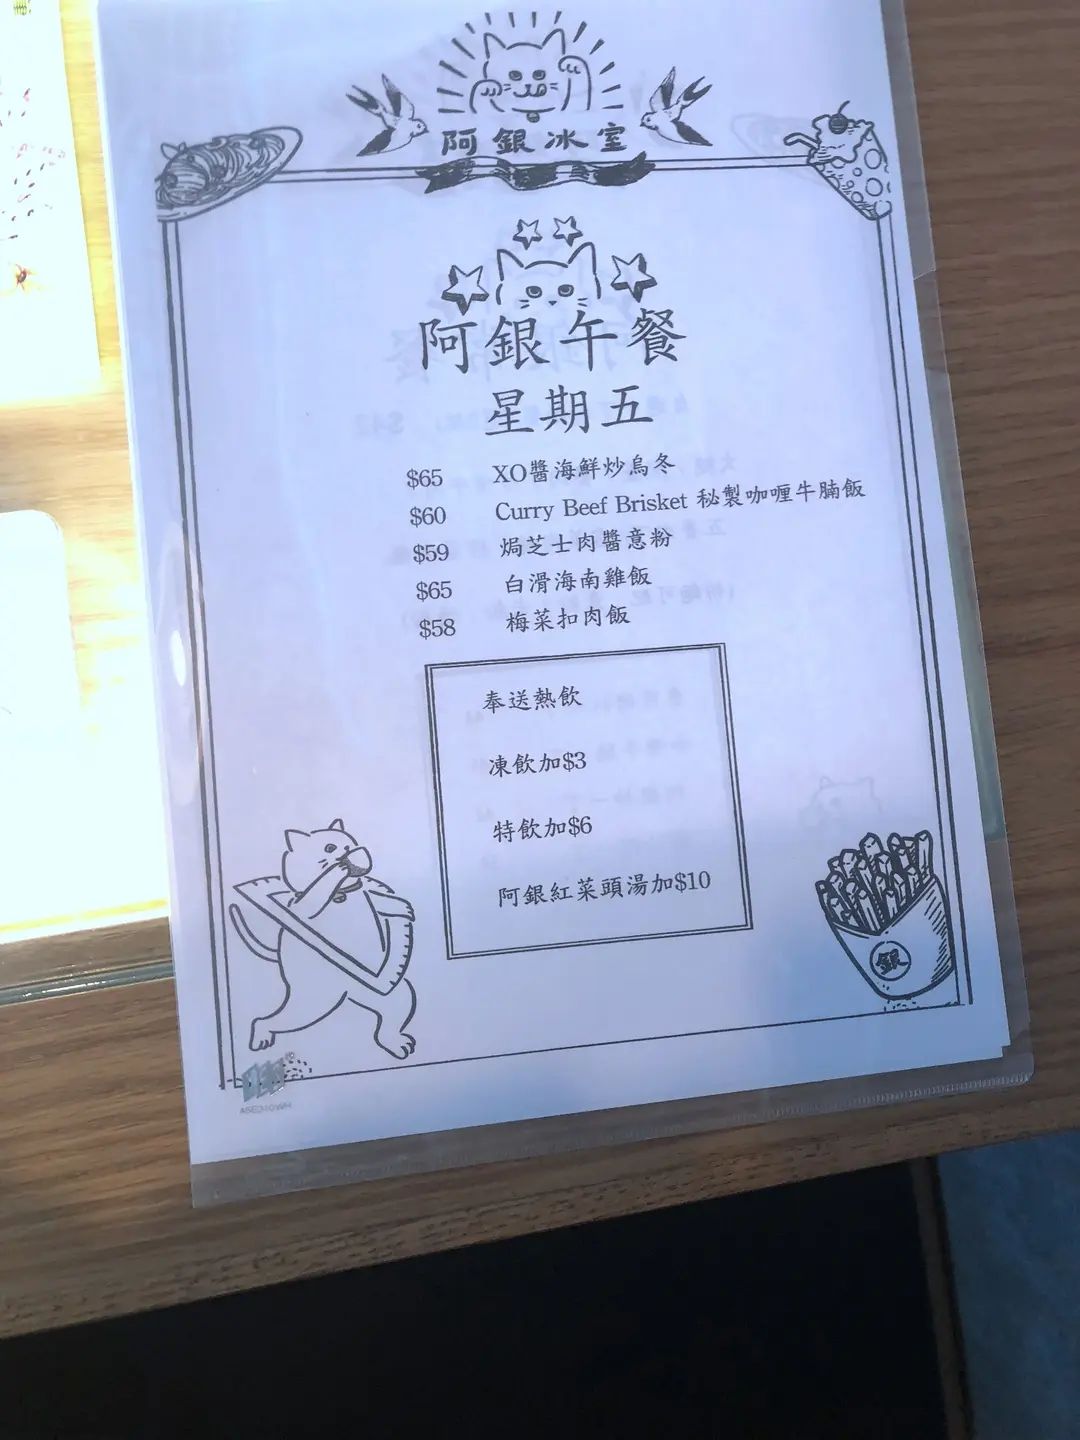 阿銀冰室
阿銀午餐
星期五
$65 XO醬海鮮炒烏冬
$60 Curry Beef Brisket 秘製咖喱牛腩飯
$59 焗芝士肉醬意粉
$65 白滑海南雞飯
$58 梅菜扣肉飯
奉送熱飲
凍飲加$3
特飲加$6
阿銀紅菜頭湯加$10
銀